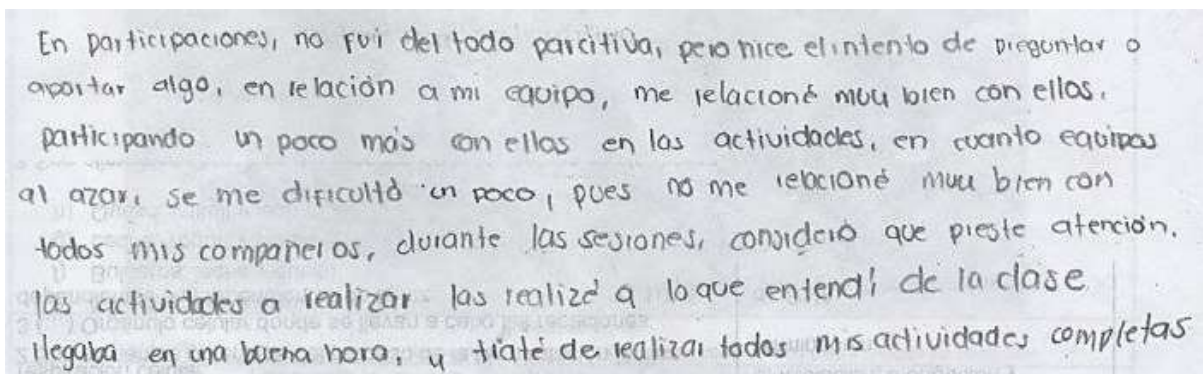 En participaciones, no fui del todo parcitiva, pero hice el intento de preguntar o
aportar algo, en relación a mi equipo, me relacioné muy bien con ellos,
participando un poco más con ellos en las actividades, en cuanto equipos
al azar, se me dificultó un poco, pues no me relacioné muy bien con
todos mis compañeros, durante las sesiones, consideró que preste atención,
las actividades a realizar las realizé a lo que entendí de la clase
llegaba en una buena hora, y traté de realizar todas mis actividades completas